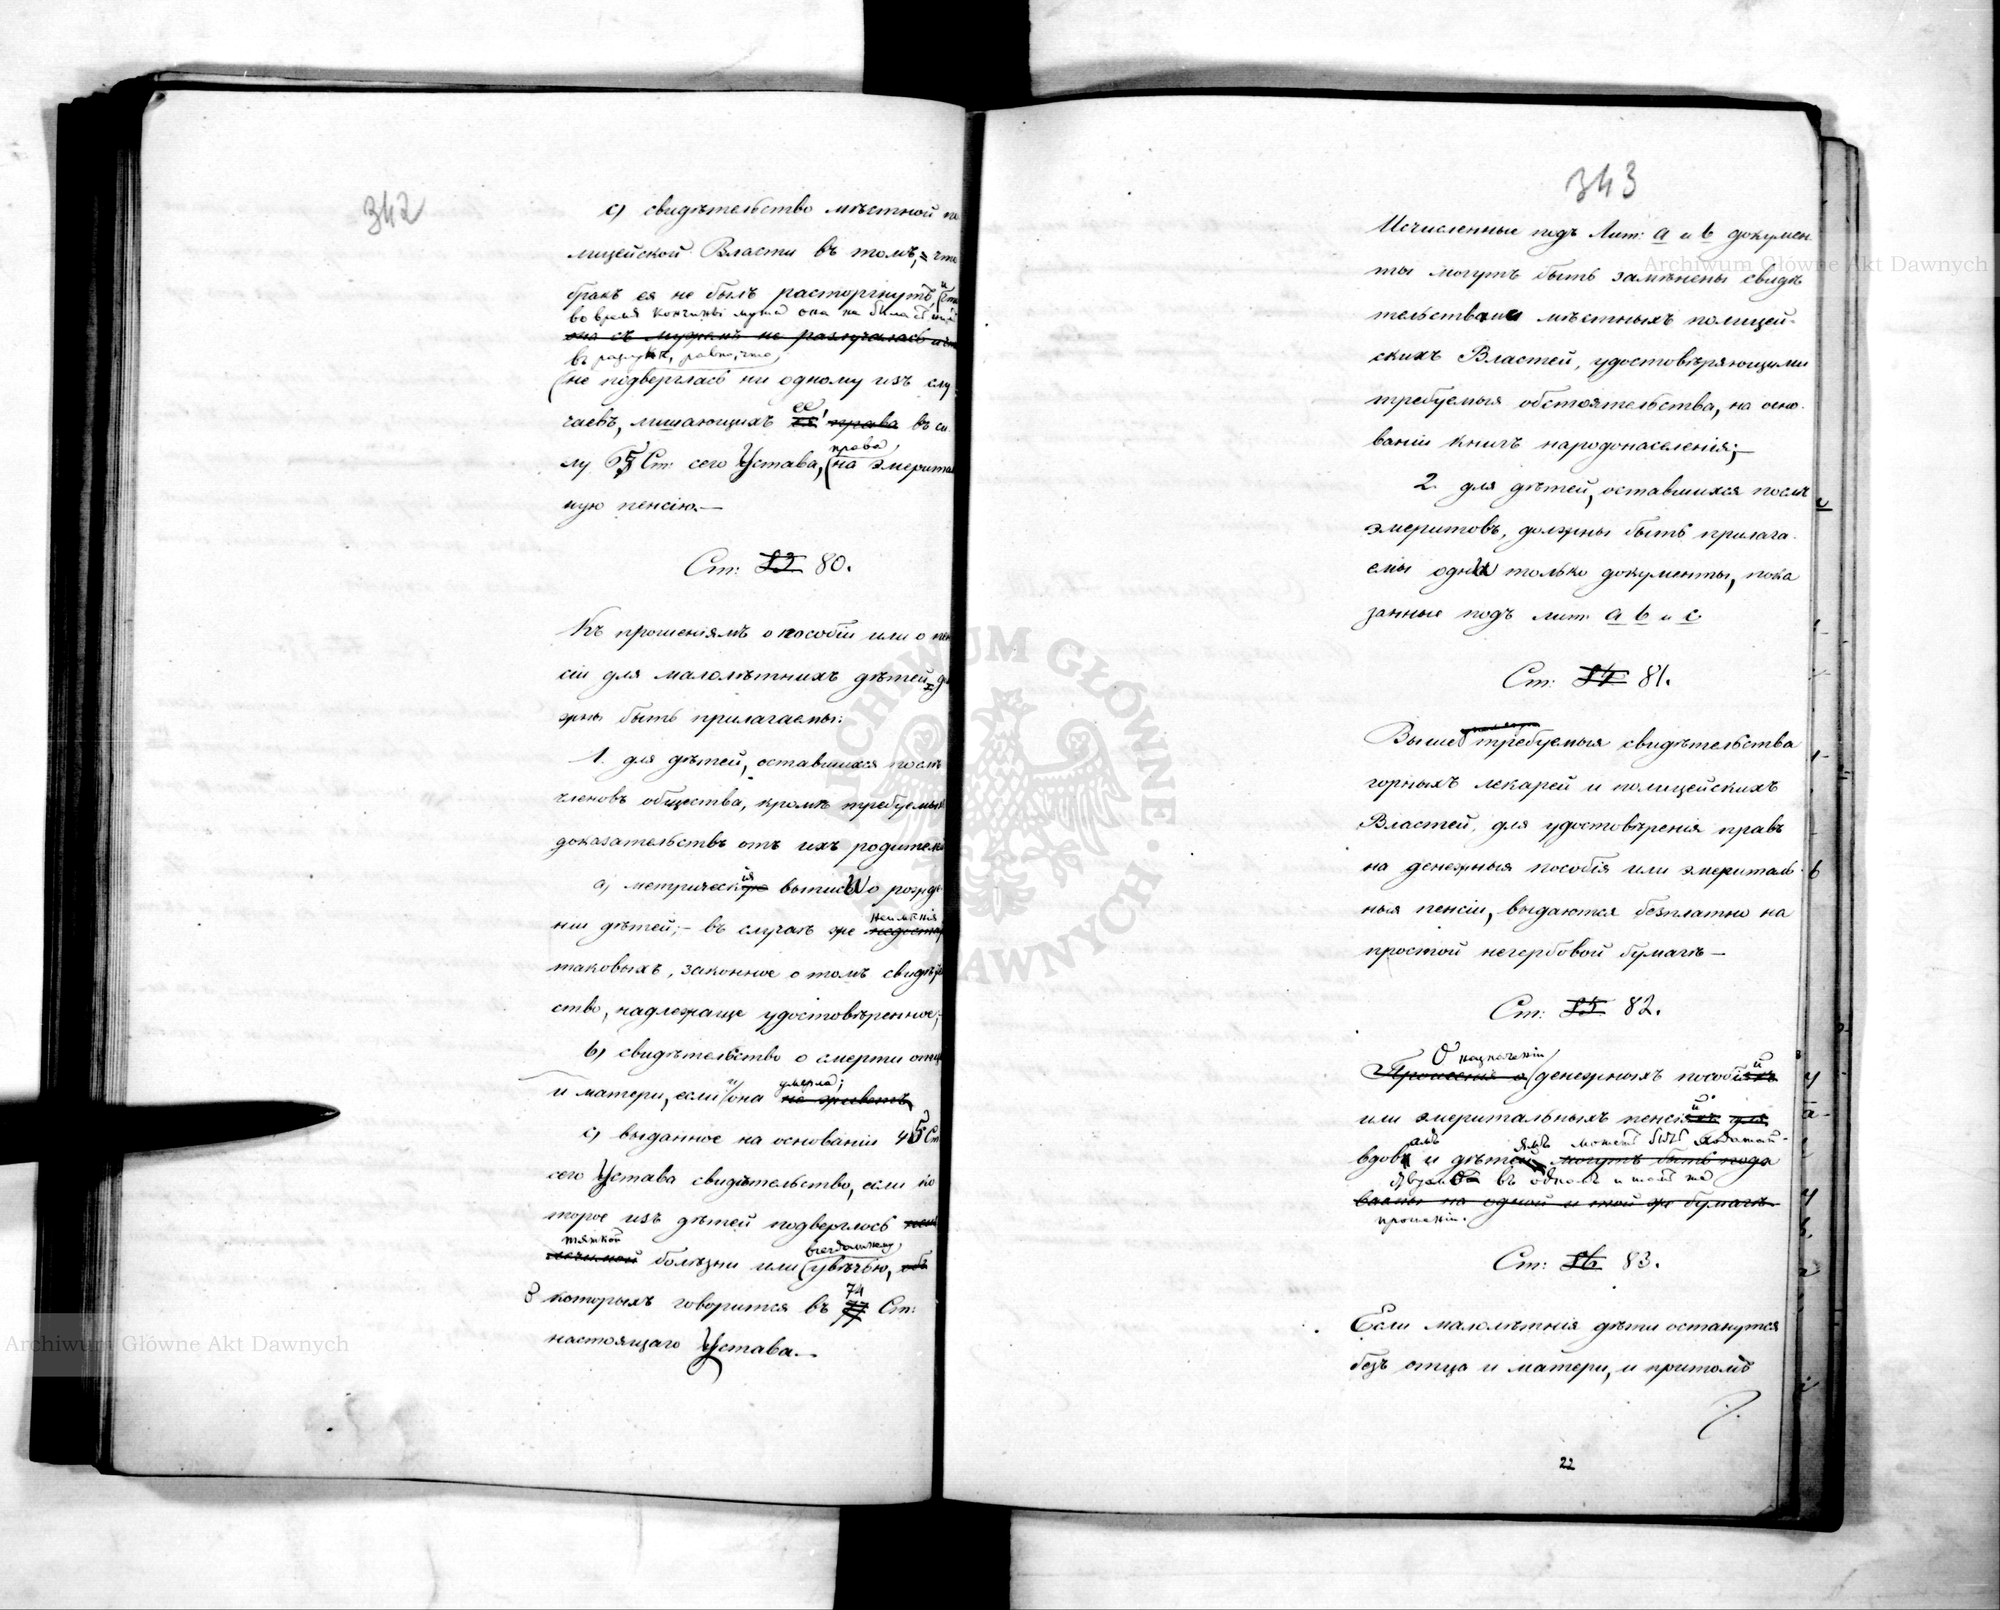 342
с) свидѣтельство мѣстной по
лицейской Власти въ томъ, что
бракъ ея не былъ расторгнутъ, и
во время кончины мужа она не была съ нимъ
она съ мужемъ не разлучалась и что
въ разлукѣ, равно, что
не подверглась ни одному изъ слу
чаевъ, лишающихъ ее права въ си
права
лу 65 Ст. сего Устава, на эмериталь
ную пенсію.—
Ст: 83 80.
Къ прошеніямъ о пособіи или о пен
сіи для малолѣтнихъ дѣтей дол
жны быть прилагаемы:
1. для дѣтей, оставшихся послѣ
членовъ общества, кромѣ требуемыхъ
доказательствъ отъ ихъ родителей
а) метрическія выписи о рожде
неимѣнія
ніи дѣтей;— въ случаѣ же недостат
таковыхъ, законное о томъ свидѣтель
ство, надлежаще удостовѣренное;
b) свидѣтельство о смерти отца
умерла;
и матери, если и она не живетъ
с) выданное на основаніи 45 Ст
сего Устава свидѣтельство, если ко
торое изъ дѣтей подверглось
тяжкой
болѣзни или увѣчью, объ
74
о которыхъ говорится въ 77 Ст:
настоящаго Устава.—
343
Исчисленные подъ Лит: а и b докумен
ты могутъ быть замѣнены свидѣ
тельствами мѣстныхъ полицей-
скихъ Властей, удостовѣряющими
требуемыя обстоятельства, на осно-
ваніи книгъ народонаселенія;—
2. для дѣтей, оставшихся послѣ
эмеритовъ, должны быть прилага-
емы одни только документы, пока
занные подъ лит: а b и с
Ст: 84 81.
Выше требуемыя свидѣтельства
горныхъ лекарей и полицейскихъ
Властей, для удостовѣренія правъ
на денежныя пособія или эмериталь-
ныя пенсіи, выдаются безплатно на
простой негербовой бумагѣ—
Ст: 85 82.
О назначеніи
Прошенія о денежныхъ пособій
или эмеритальныхъ пенсій для
амъ ямъ можетъ быть ходатай-
вдовъ и дѣтей могутъ быть пода
въ одномъ и томъ же
ваемы на одной и той же бумагѣ
прошеніи.
Ст: 86 83.
Если малолѣтнія дѣти останутся
безъ отца и матери, и притомъ
22
Archiwum Główne Akt Dawnych
Archiwum Główne Akt Dawnych
ARCHIWUM GŁÓWNE AKT DAWNYCH